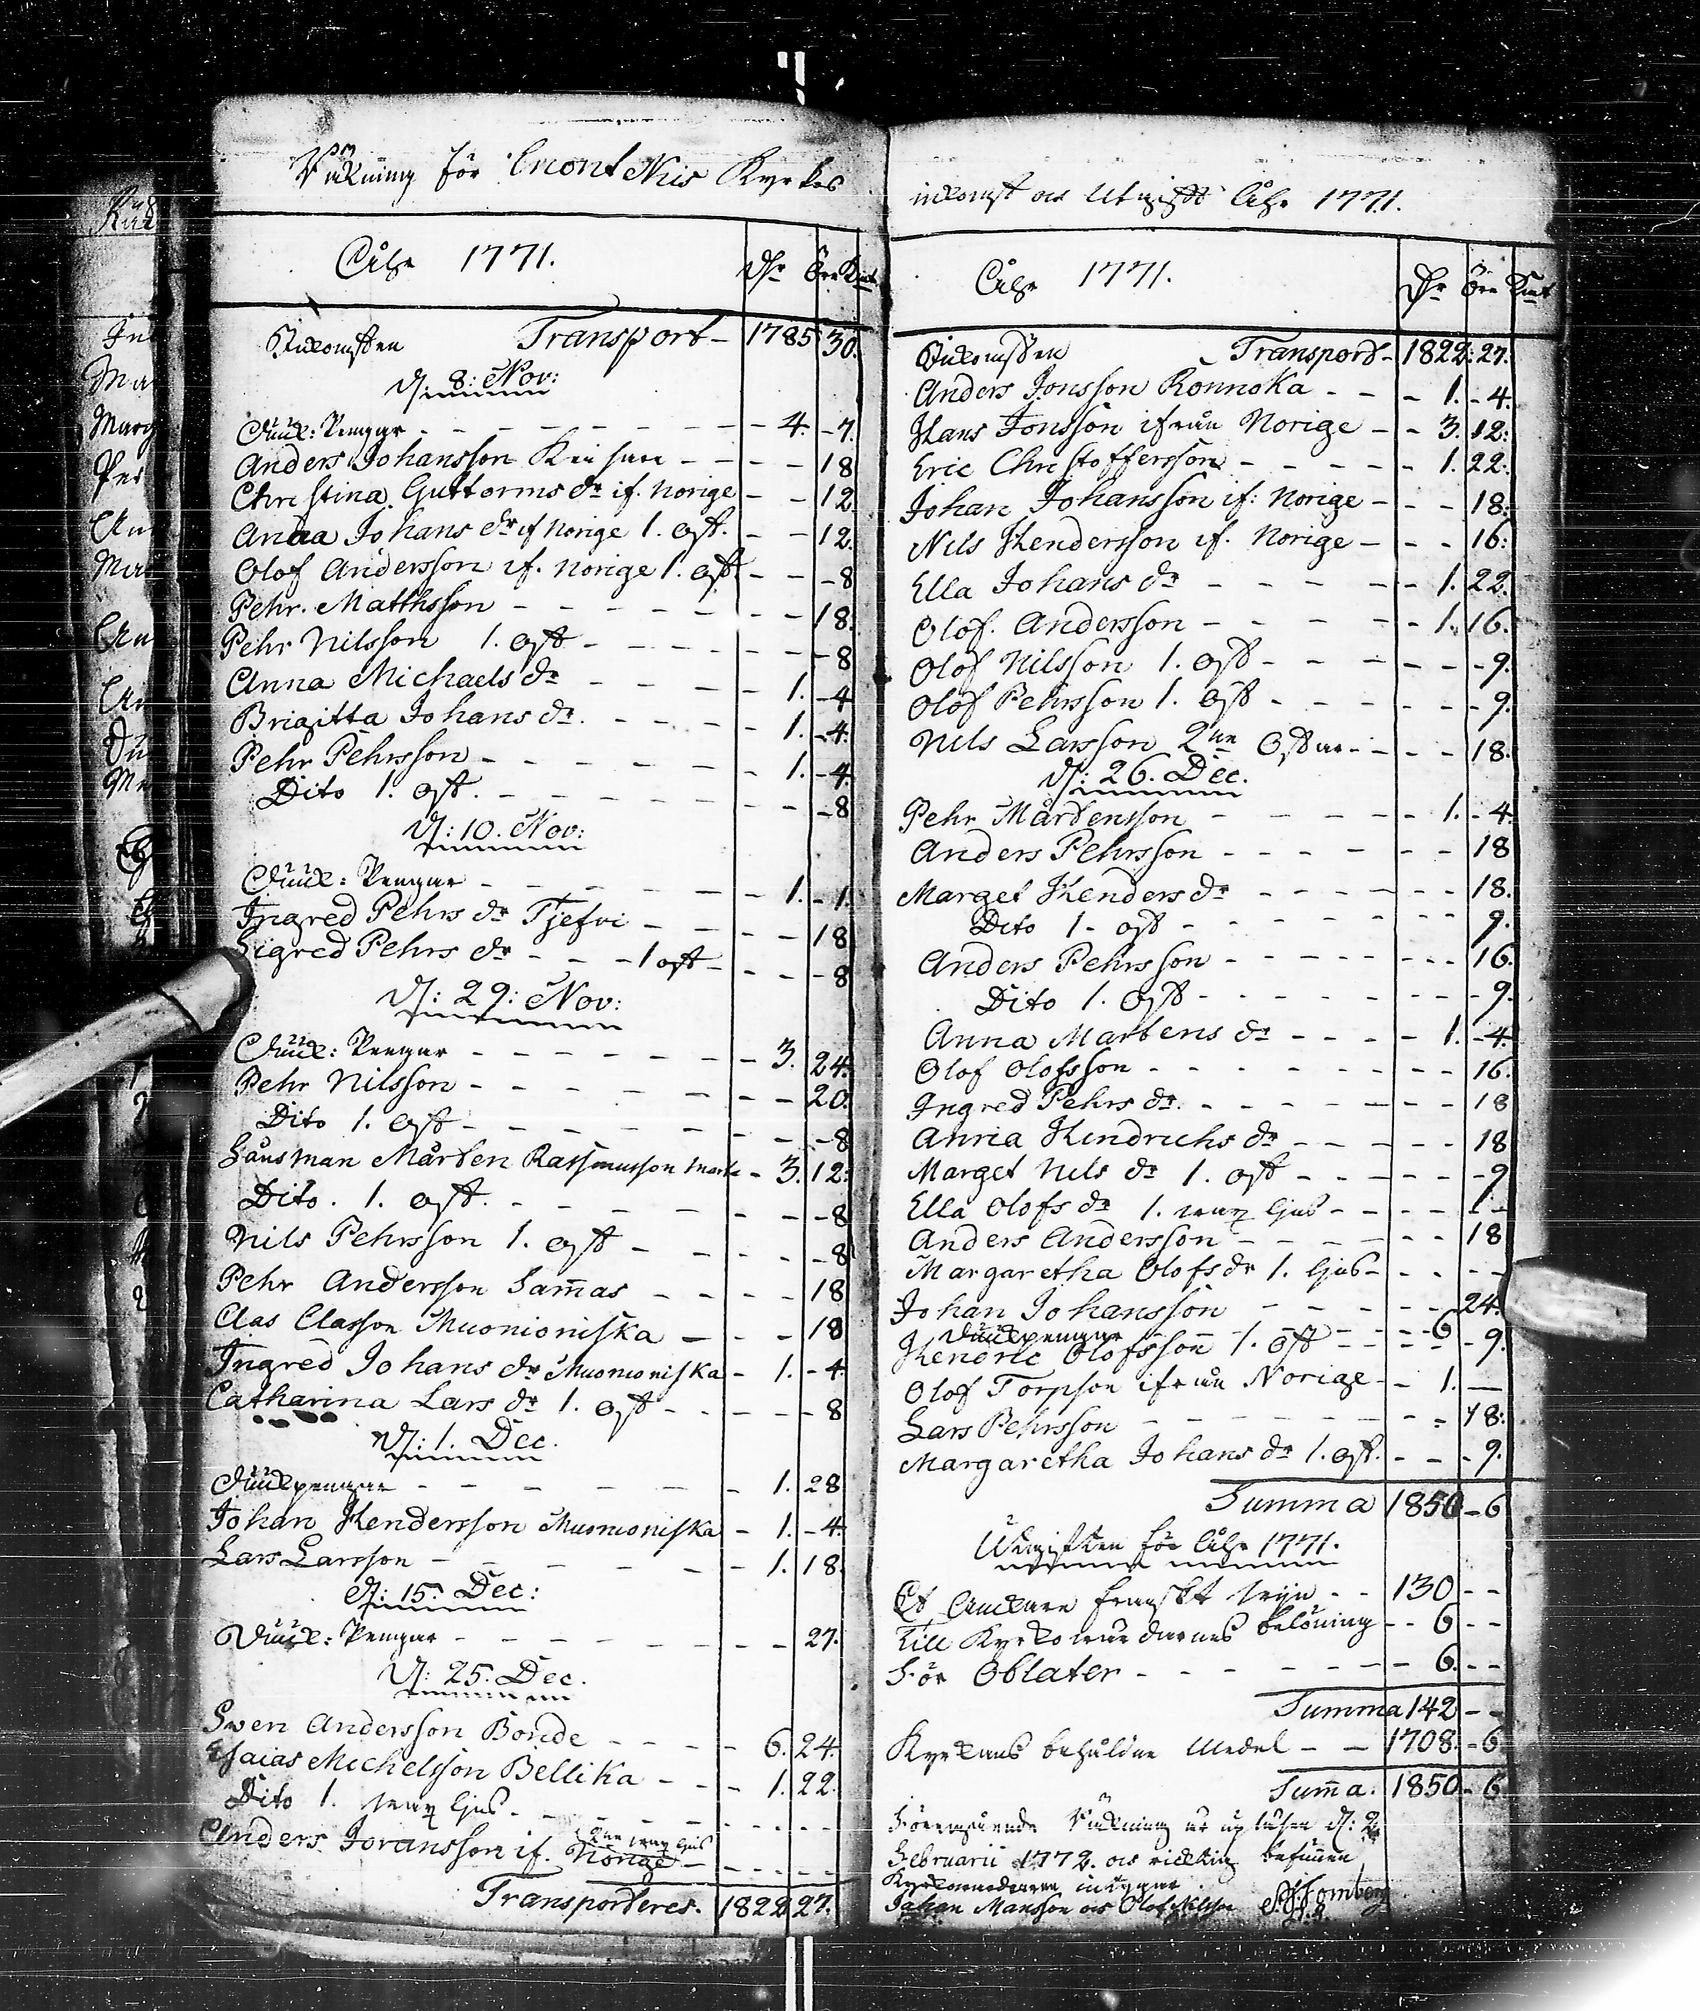 Räkning för Enont Kiis Kyrkos
Åhr 1771. Dlr Öre Kmt
Inkomsten Transport - 1785 30.
d: 8: Nov:
Pengar - 4. - 7.
Anders Johansson - 18
Christina Guttorms dr if. Norige - 12
Anna Johans dr if Norige 1. ost. - 12.
Olof Andersson if. Norige 1. ost - 8
Pehr. Matthsson - 18.
Pehr Nilsson 1. ost - 8
Anna Michaels dr - 1. - 4
Brigitta Johans dr. - 1. - 4.
Pehr Pehrsson - 1. - 4.
Dito 1. ost. - 8
d: 10. Nov:
Pengar - 1. - 1.
Ingred Pehrs dr Tjefvi - 18
Sigred Pehrs dr - 1 ost - 8
d: 29: Nov:
Pengar - 3. 24.
Pehr Nilsson - 20.
Dito 1. ost - 8
Mårten Rassmusson - 3. 12:
Dito. 1. ost. - 8
Nils Pehrsson 1. ost - 8
Pehr Andersson Sam̄as - 18
Clas Classon Muonioniska - 18
Ingred Johans dr Muonioniska - 1. - 4
Catharina Lars dr 1. ost - 8
d: 1. Dec.
penga​r - 1. 28
Johan Hendersson Muonioniska - 1. - 4.
Lars Larsson - 1. 18.
d: 15. Dec:
Pengar - 27.
d: 25. Dec.
Swen Andersson Bonde - 6. 24.
Esaias Michelsson Bellika - 1. 22.
Dito 1. ljus
Anders Joransson if. Norige ljus
Transporteres. 1822 27.
inkomst och Utgift Åhr 1771.
Åhr 1771. Dlr Öre Kmt
Inkomsten Transport - 1822: 27.
Anders Jonsson Ronnoka - 1. - 4.
Hans Jonsson ifrån Norige - 3. 12:
Eric Christoffersson - 1. 22.
Johan Johansson if: Norige - 18.
Nils Hendersson if. Norige - 16:
Ella Johans dr - 1. 22.
Olof. Andersson - 1. 16.
Olof Nilsson 1. ost - 9.
Olof Pehrsson 1. ost - 9.
Nils Larsson 2ne Ostar - 18.
d: 26. Dec.
Pehr Mårtensson - 1. - 4.
Anders Pehrsson - 18
Marget Henders dr - 18.
Dito 1 - ost - 9.
Anders Pehrsson - 16.
Dito 1. ost - 9.
Anna Martens dr - 1. - 4.
Olof Olofsson - 16.
Ingred Pehrs dr. - 18
Anna Hendrichs dr - 18
Marget Nils dr 1. ost - 9
Ella Olofs dr 1. ljus
Anders Andersson - 18
Margaretha Olofs dr 1. ljus
Johan Johansson - 24.
penga​r - 6
Hendric Olofsson 1. ost - 9.
Olof Torpson ifrån Norige - 1. -
Lars Pehrsson - 18.
Margaretha Johans dr 1. ost. - 9.
Summa 1850 - 6
Utgiften för Åhr 1771.
Et Anckare franskt wijn - 130 - -
Till Kyrko belöning - 6 - -
För Oblater - 6. - -
Summa 142 - -
Kyrkans behåldne Medel - 1708. - 6
Sum̄a. 1850 - 6
Föregående Räkning är upläsen d: 2
Februarii 1772. och befunnen
Johan Mansson och Olof Nilsson